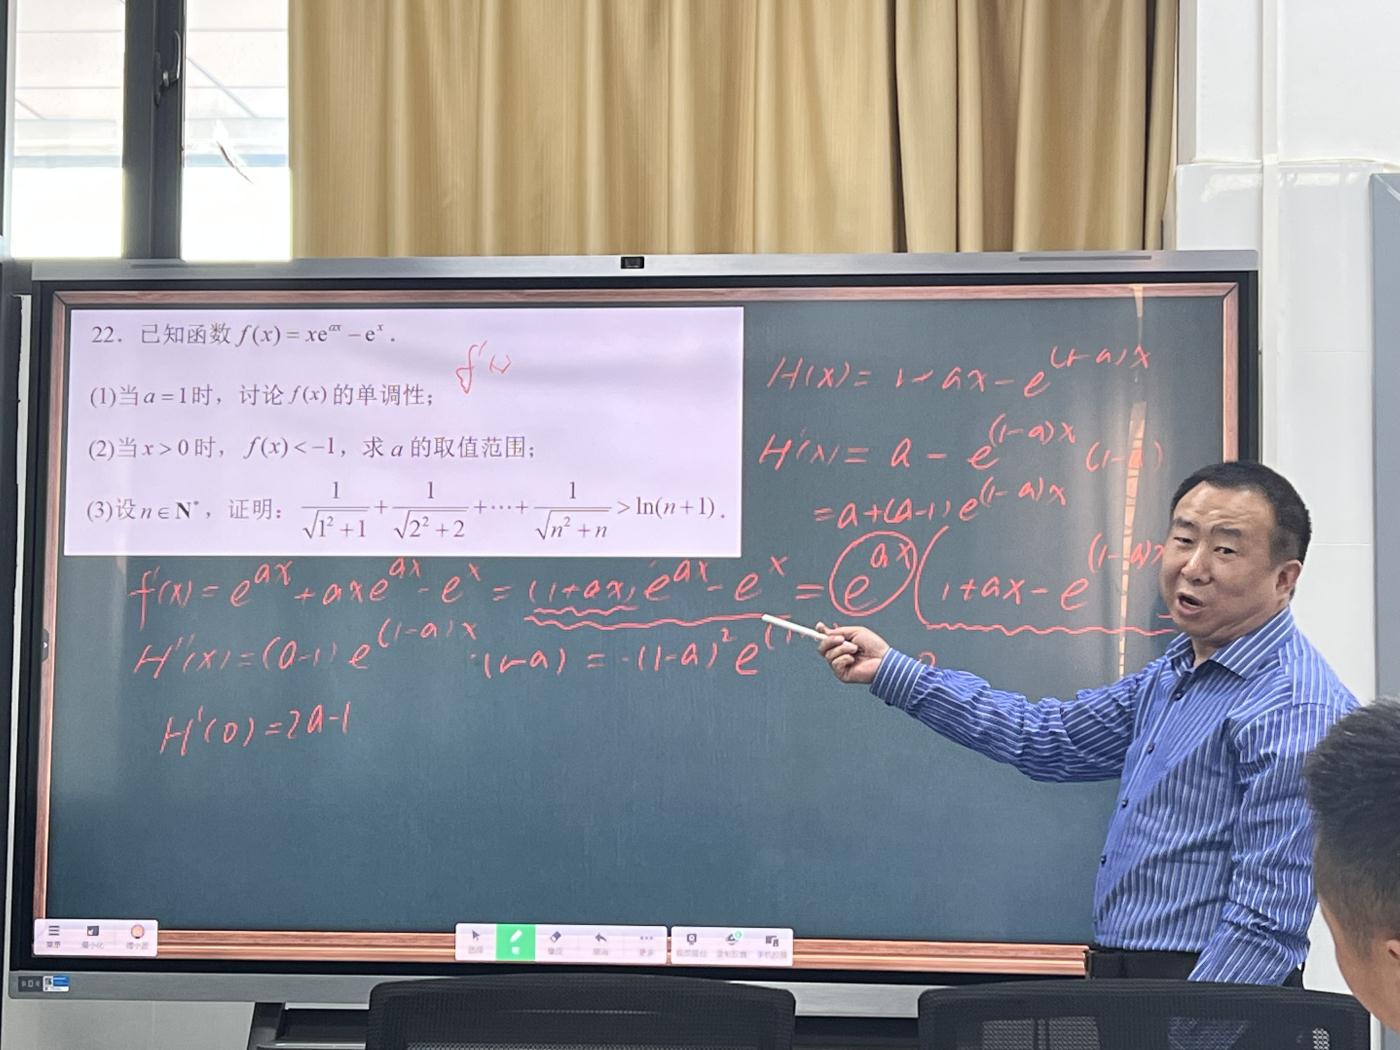 22．已知函数 f(x)=xe^{ax}-e^x.
(1)当a=1时，讨论f(x)的单调性；
f'(x)
(2)当x>0时，f(x)<-1，求a的取值范围；
(3)设n∈N*，证明：1/√(1²+1)+1/√(2²+2)+⋯+1/√(n²+n)>ln(n+1).
H(x)=1+ax-e^{(1-a)x}
H'(x)=a-e^{(1-a)x}(1-a)
=a+(a-1)e^{(1-a)x}
f'(x)=e^{ax}+axe^{ax}-e^x=(1+ax)e^{ax}-e^x=e^{ax}(1+ax-e^{(1-a)x}
H''(x)=(a-1)e^{(1-a)x}·(1-a)=-(1-a)²e^{(1
H'(0)=2a-1
菜单 最小化
选择 笔 更多